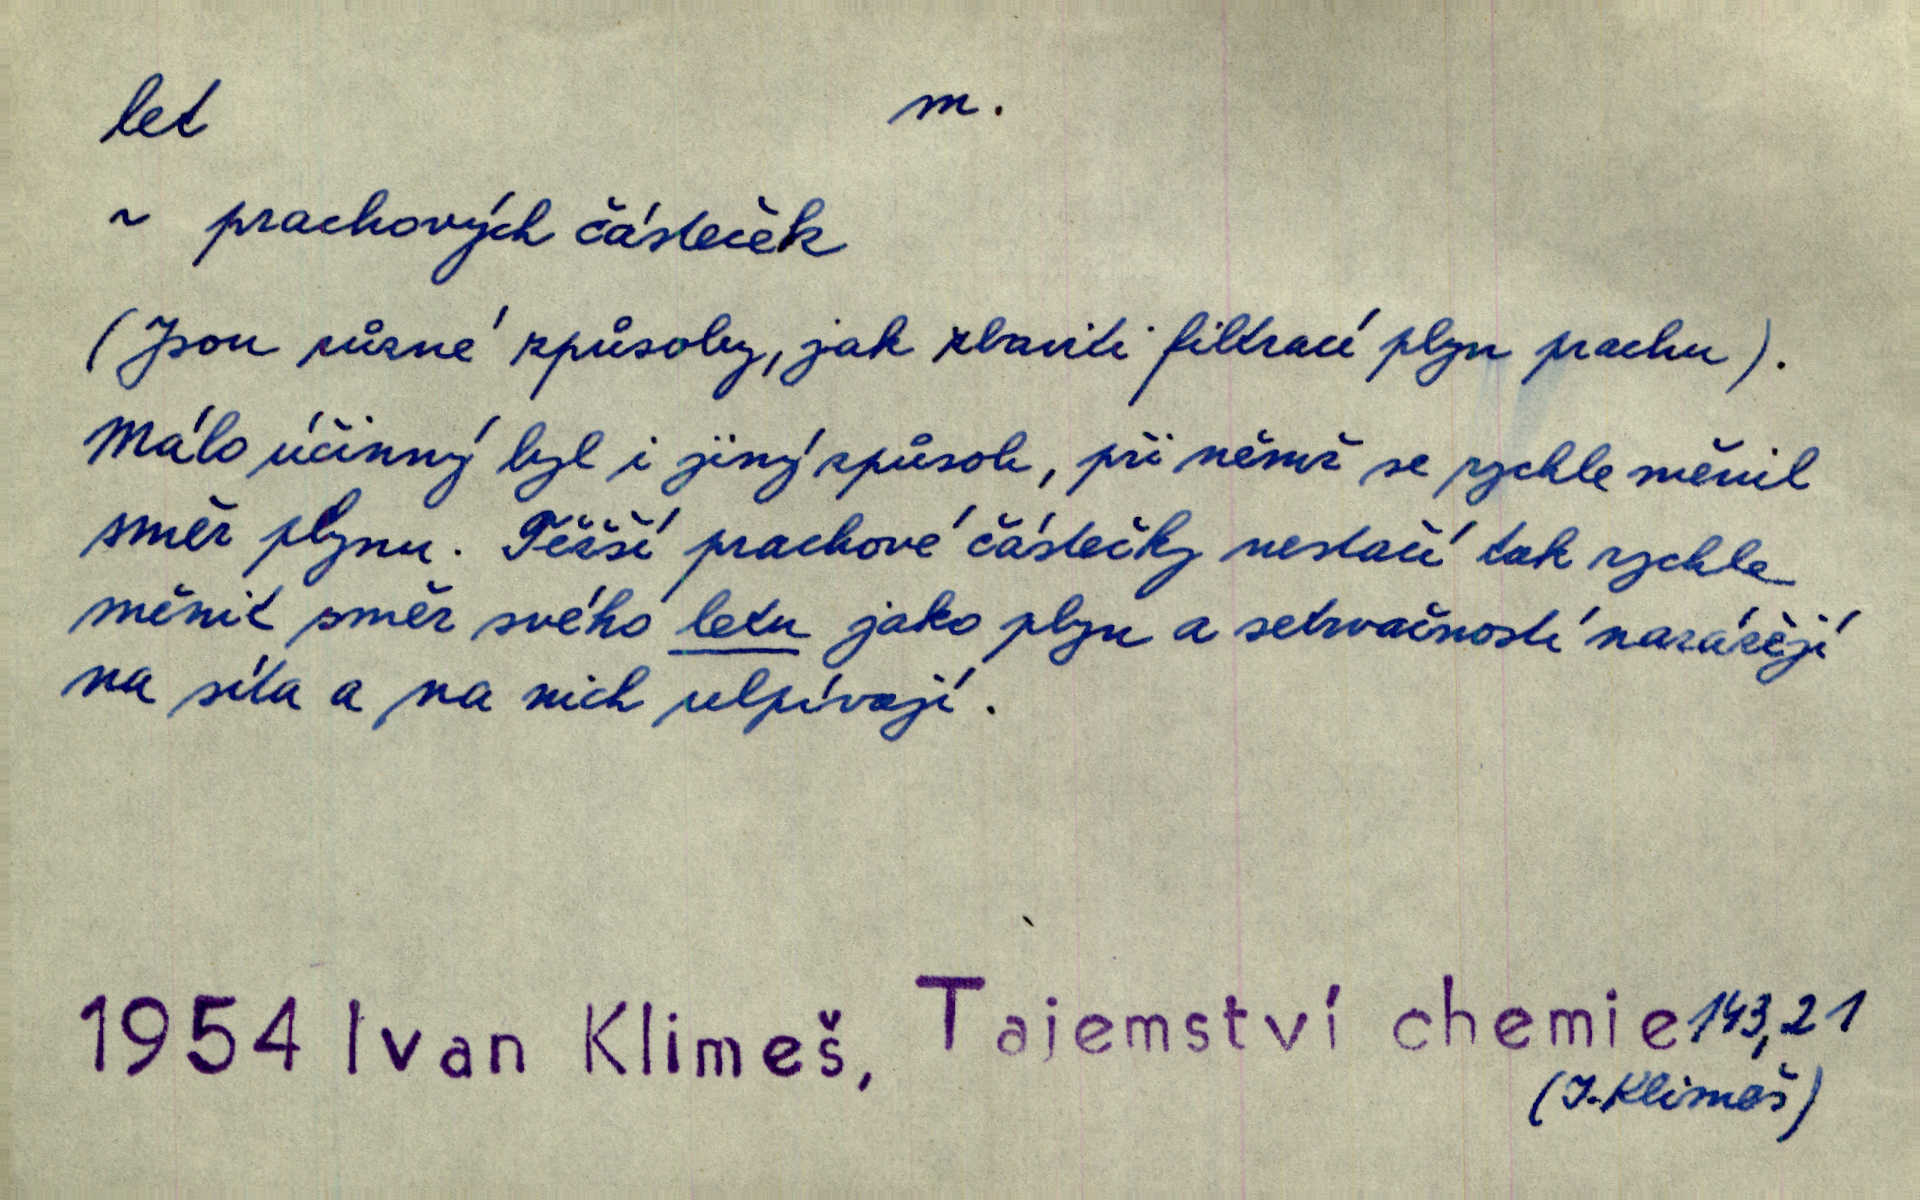 let m.
~ prachových částeček
(Jsou různé způsoby, jak zbaviti filtrací plyn prachu).
Málo účinný byl i jiný způsob, při němž se rychle měnil
směr plynu. Těžší prachové částečky nestačí tak rychle
měnit směr svého letu jako plyn a setrvačností narážejí
na síta a na nich ulpívají.
1954 Ivan Klimeš, Tajemství chemie 143,21
(I. Klimeš)